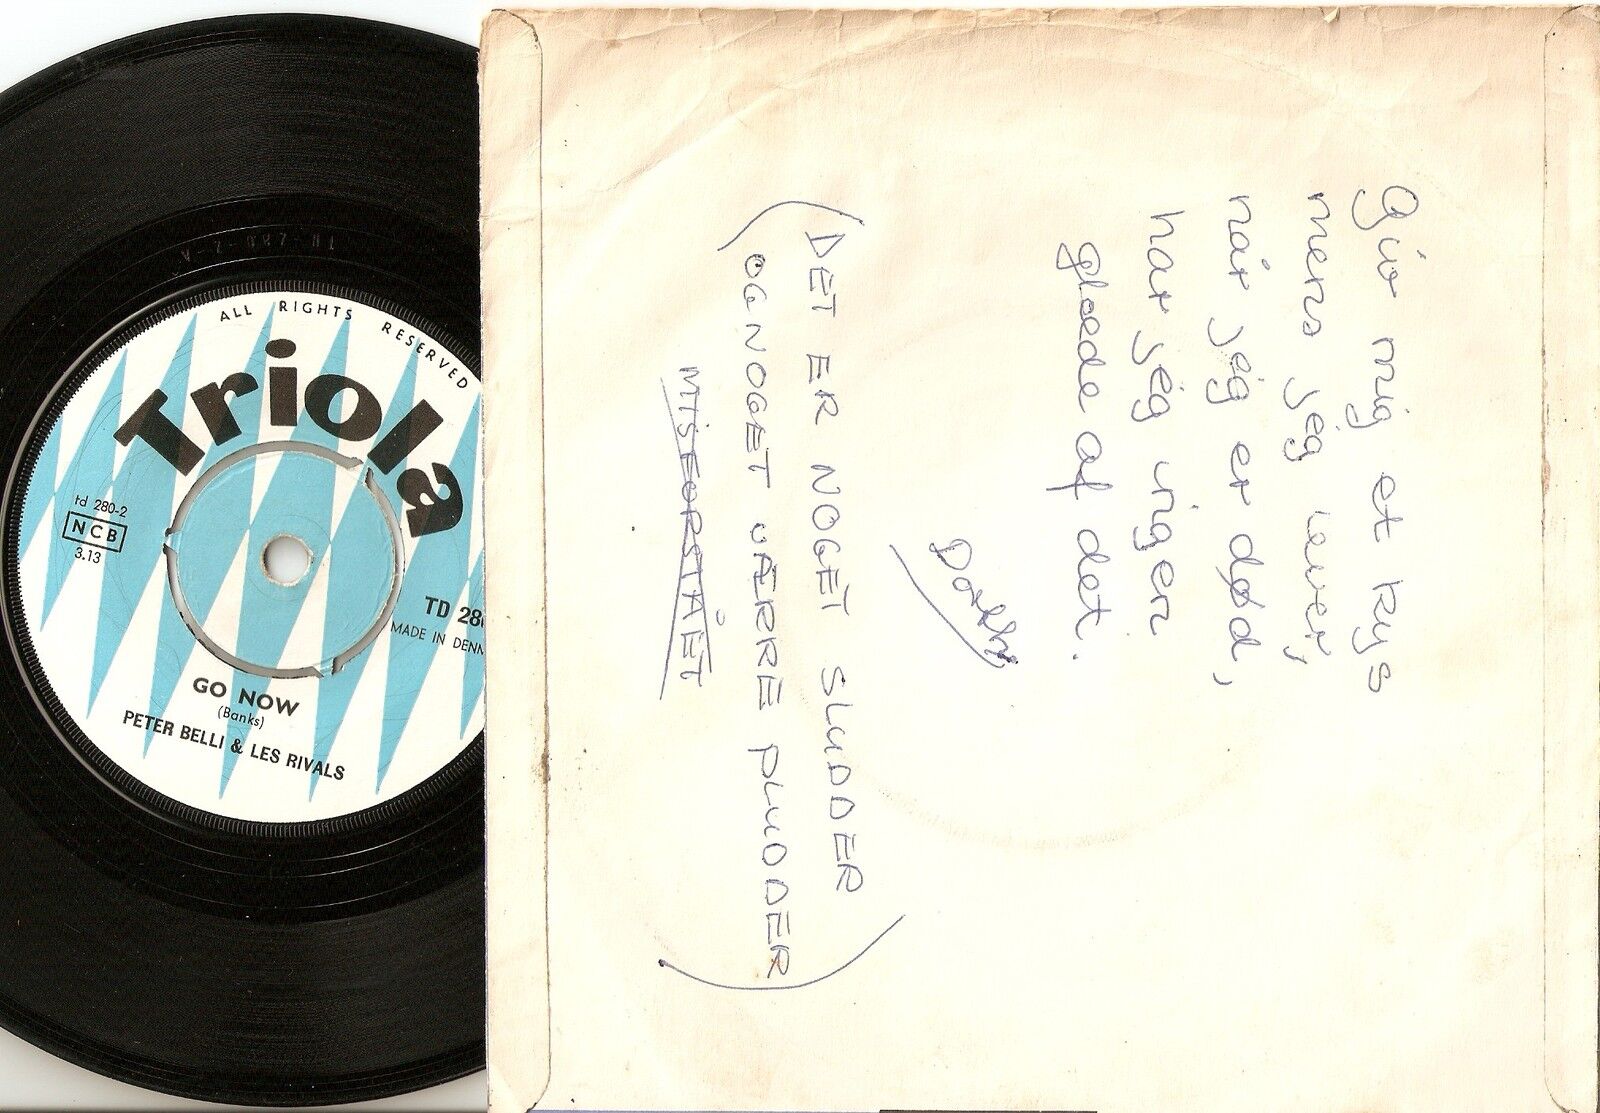 ALL RIGHTS RESERVED
Triola
td 280-2
NCB
3.13
TD 28
MADE IN DENM
GO NOW
(Banks)
PETER BELLI & LES RIVALS
Giv mig et kys
mens jeg lever,
når jeg er død,
har jeg ingen
glæde af det.
(DET ER NOGET SLUDDER
OG NOGET VÆRRE PLUDDER)
MISFORSTÅET